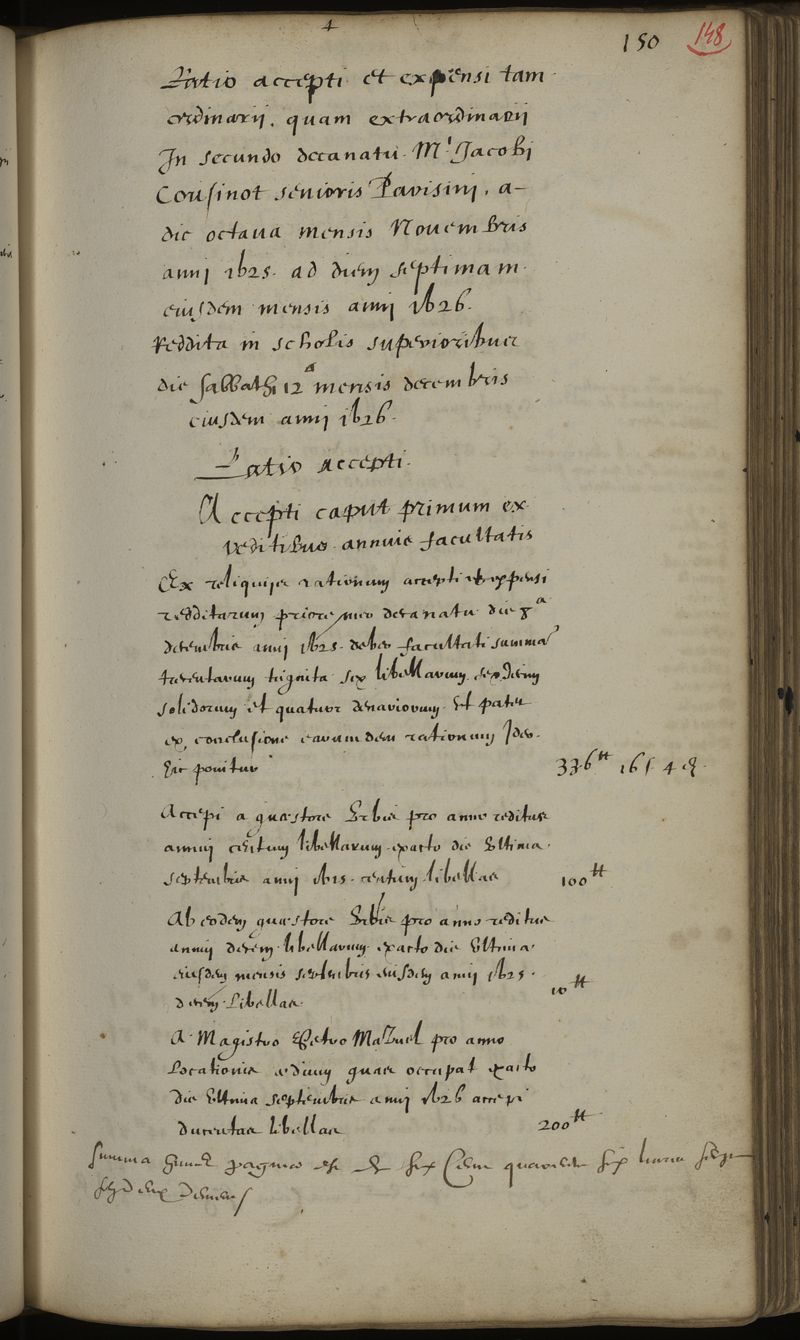 4
150 148
Ratio accepti et expensi tam
ordinarij, quam extraordinarij
In secundo decanatu Mri Jacobj
Cousinot senioris Parisinj, a
die octaua mensis Nouembris
annj 1625. ad diem septimam
eiusdem mensis annj 1626.
Reddita in scholis superioribus
die sabbathi 12a mensis decembris
eiusdem annj 1626.
Ratio accepti.
Accepti caput primum ex
reditibus annuis facultatis
Ex reliquijs rationum accepti et expensi
redditarum priore meo decanatu die 8a
decembris annj 1625. debeo facultati summa
trecentarum triginta sex libellarum sexdecim
solidorum et quatuor denariorum. Et patet
ex conclusione earumdem rationum Ideo
hic ponitur 336tt 16s 4 d.
Accepi a quæstore Vrbis pro anno reditus
annuj centum libellarum exacto die vltima
septembris annj 1625. centum libellas 100tt
Ab eodem quæstore Vrbis pro anno reditus
annuj decem libellarum exacto die vltima
eiusdem mensis septembris eiusdem annj 1625.
decem libellas. 10tt
A Magistro Petro Mazuel pro anno
Locationis ædium quas occupat exacto
die vltima septembris annj 1626 accepi
ducentas libellas 200tt
Summa six cens quarente six liures seize